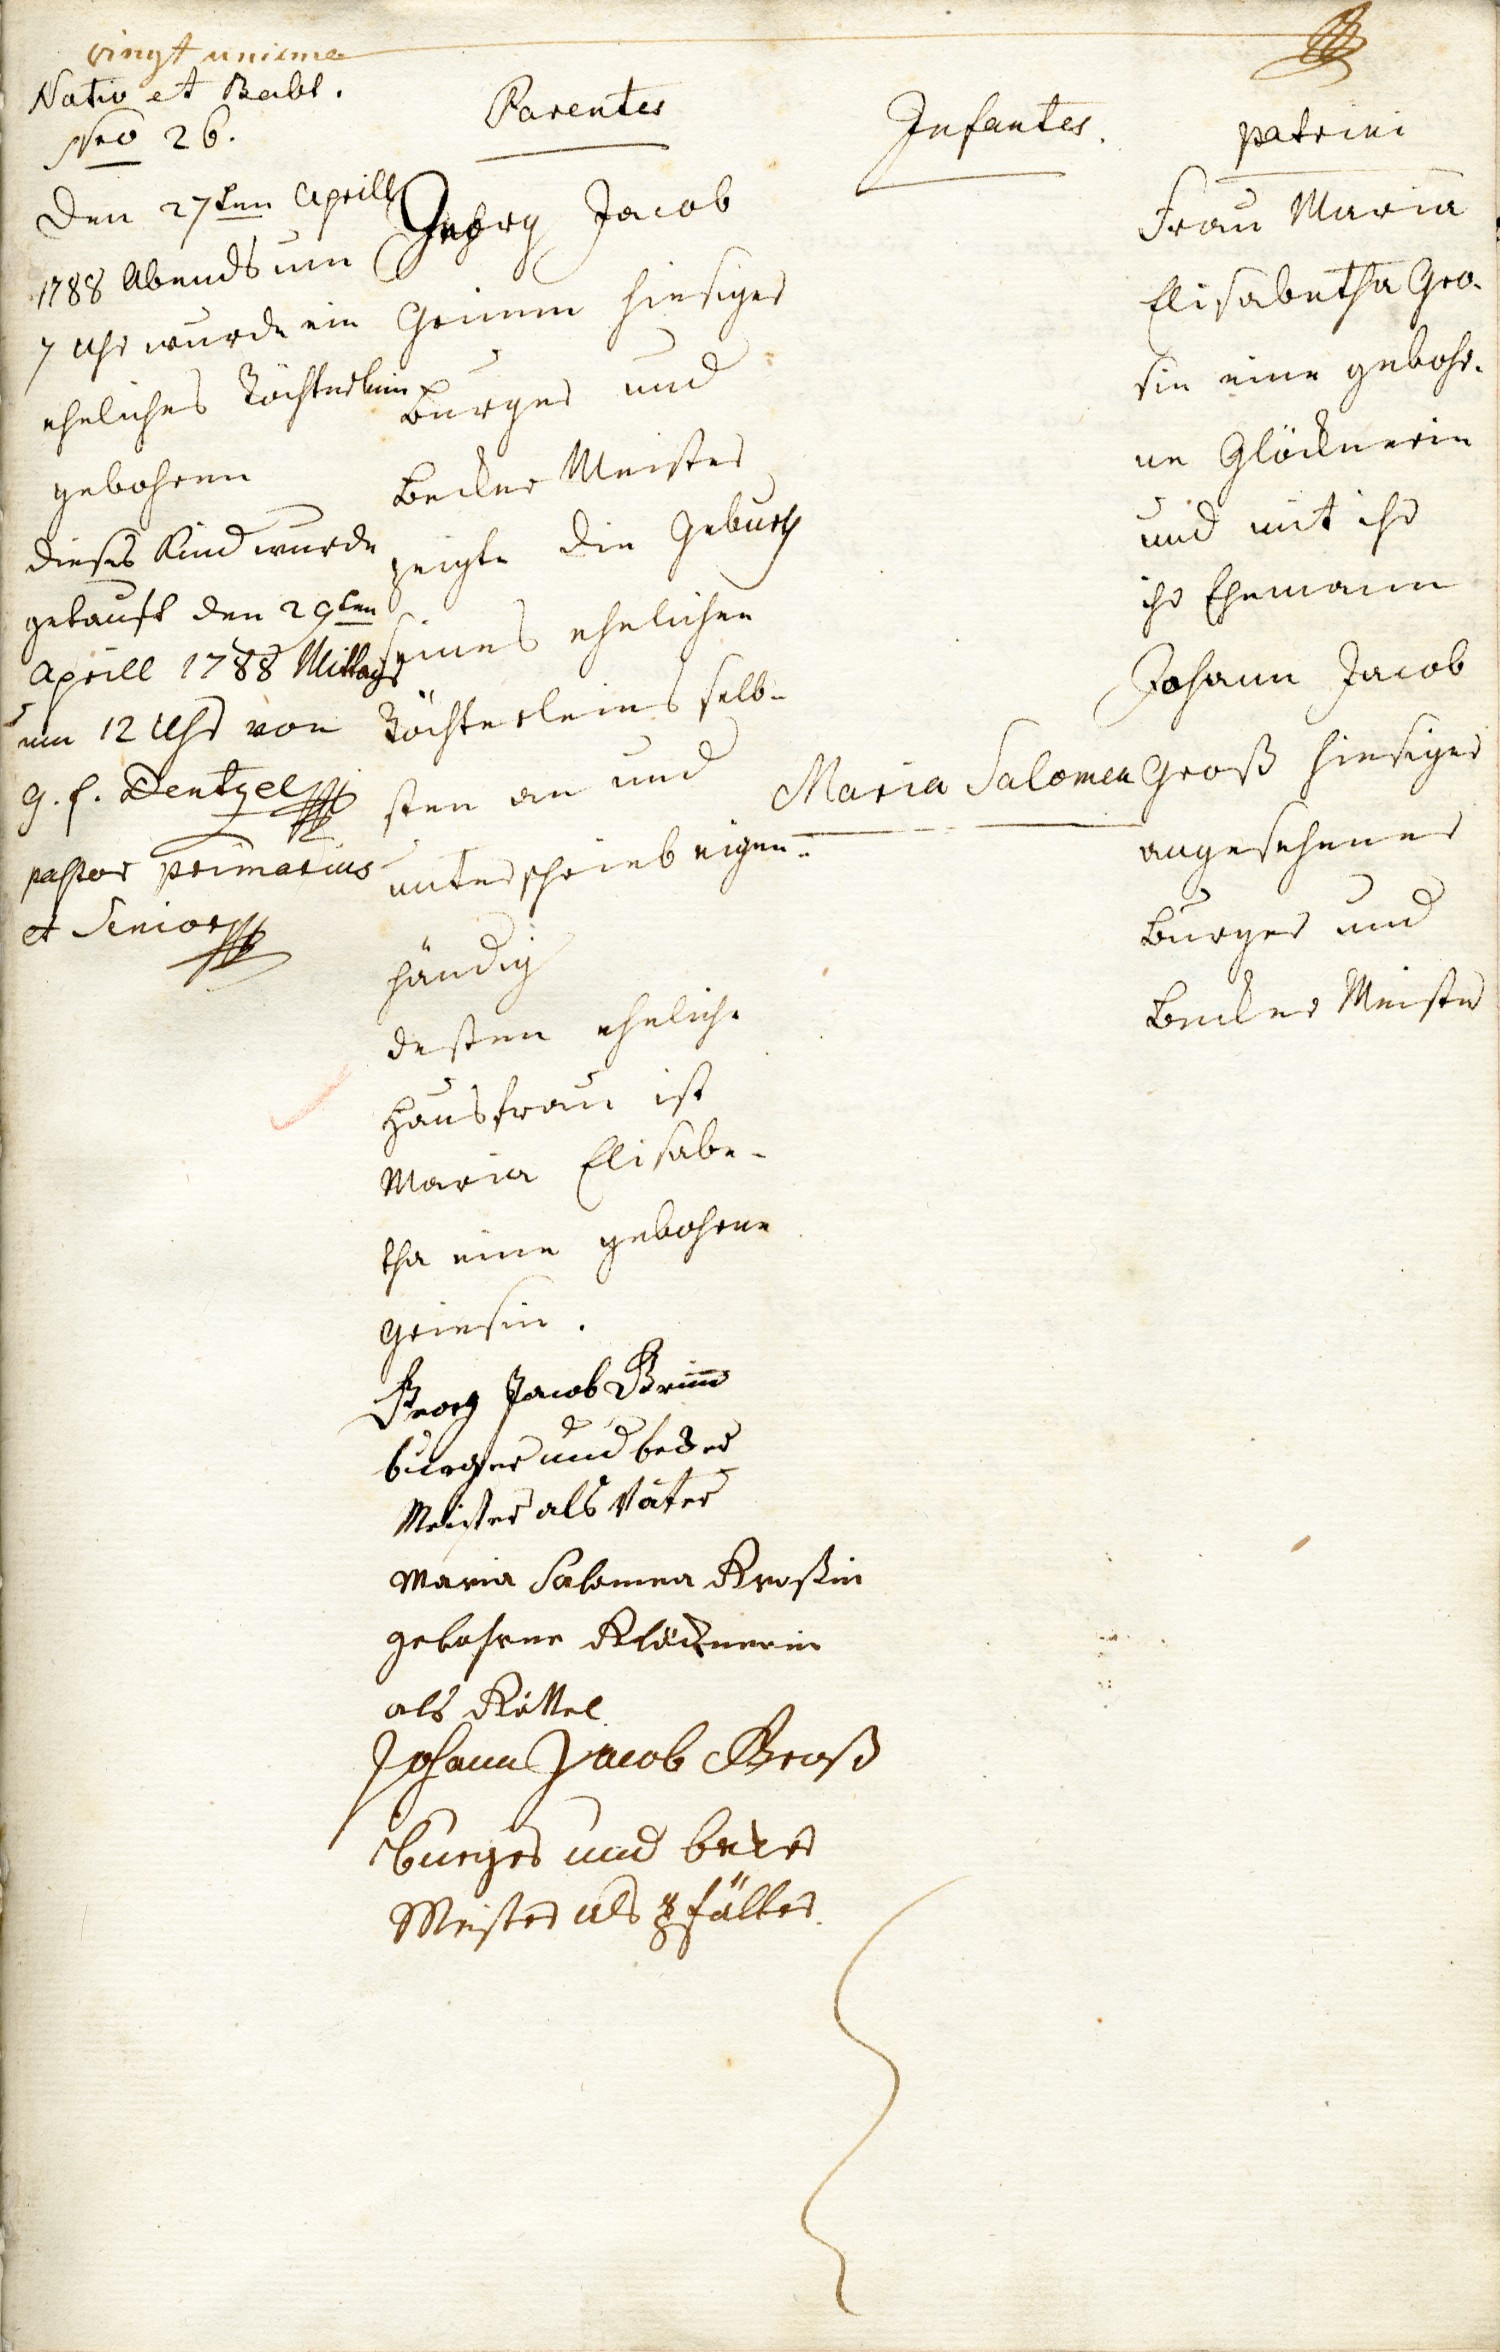 vingt unieme
Nativ et Babt.
Nro 26.
Den 27ten Aprill
1788 Abends um
7 Uhr wurde ein
eheliches Töchterlein
gebohren
dieses Kind wurde
getauft den 29ten
Aprill 1788 Mittags
um 12 Uhr von
G. F. Dentzel
pastor primarius
et Senior
Parentes
Georg Jacob
Grimm hiesiger
Burger und
Becker Meister
zeigte die Geburth
seines ehelichen
Töchterleins selb-
sten an und
unterschrieb eigen-
händig
dessen eheliche
Hausfrau ist
Maria Elisabe-
tha eine gebohrne
Griesin.
Georg Jacob Grimm
burger und becker
Meister als Vater
Maria Salomea Kroßin
gebohrne Klöcknerin
als Göttel
Johann Jacob Groß
burger und becker
Meister als Pfätter
Infantes.
Maria Salomea
patrini
Frau Maria
Elisabetha Gro-
sin eine gebohr-
ne Glöcknerin
und mit ihr
ihr Ehemann
Johann Jacob
Groß hiesiger
angesehener
Burger und
Becker Meister